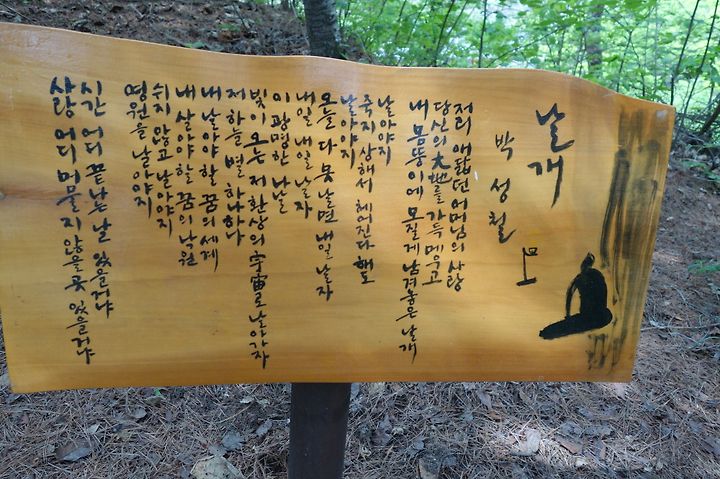 날개
박성철
저리 애닯던 어머님의 사랑
당신의 大地를 가득 메우고
내 몸뚱이에 모질게 남겨놓은 날개
날아야지
죽지 상해서 헤어진다 해도
날아야지
오늘 다 못날면 내일 날자
내일 내일 날자
이 광명한 나날
빛이 오는 저 환상의 宇宙로 날아가자
저 하늘 별 하나하나
내 날아야 할 꿈의 세계
내 살아야 할 꿈의 낙원
쉬지 않고 날아야지
영원을 날아야지
시간 어디 끝나는 날 있을거냐
사랑 어디 머물지 않을 곳 있을거냐